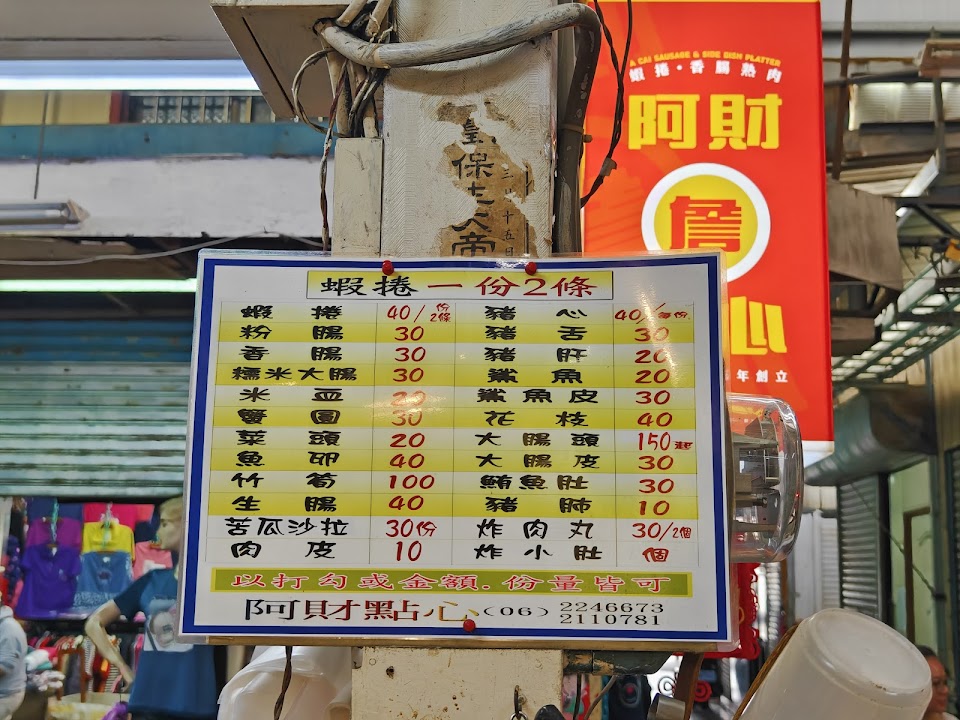 A CAI SAUSAGE & SIDE DISH PLATTER
蝦捲·香腸熟肉
阿財
心
年創立
保
三
十五日
蝦捲一份2條
蝦捲 40/份2條 豬心 40/每份
粉腸 30 豬舌 30
香腸 30 豬肝 20
糯米大腸 30 鯊魚 20
米血 20 鯊魚皮 30
蟹圓 30 花枝 40
菜頭 20 大腸頭 150起
魚卵 40 大腸皮 30
竹筍 100 鮪魚肚 30
生腸 40 豬肺 10
苦瓜沙拉 30份 炸肉丸 30/2個
肉皮 10 炸小肚 個
以打勾或金額.份量皆可
阿財點心(06) 2246673
2110781